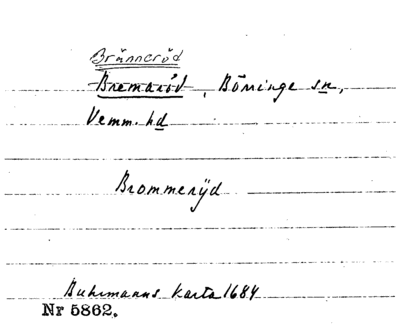 Bränneröd
Bremaröd, Börringe sn,
Vemm. hd
Brommerÿd
Buhrmanns karta 1684
Nr 5862.